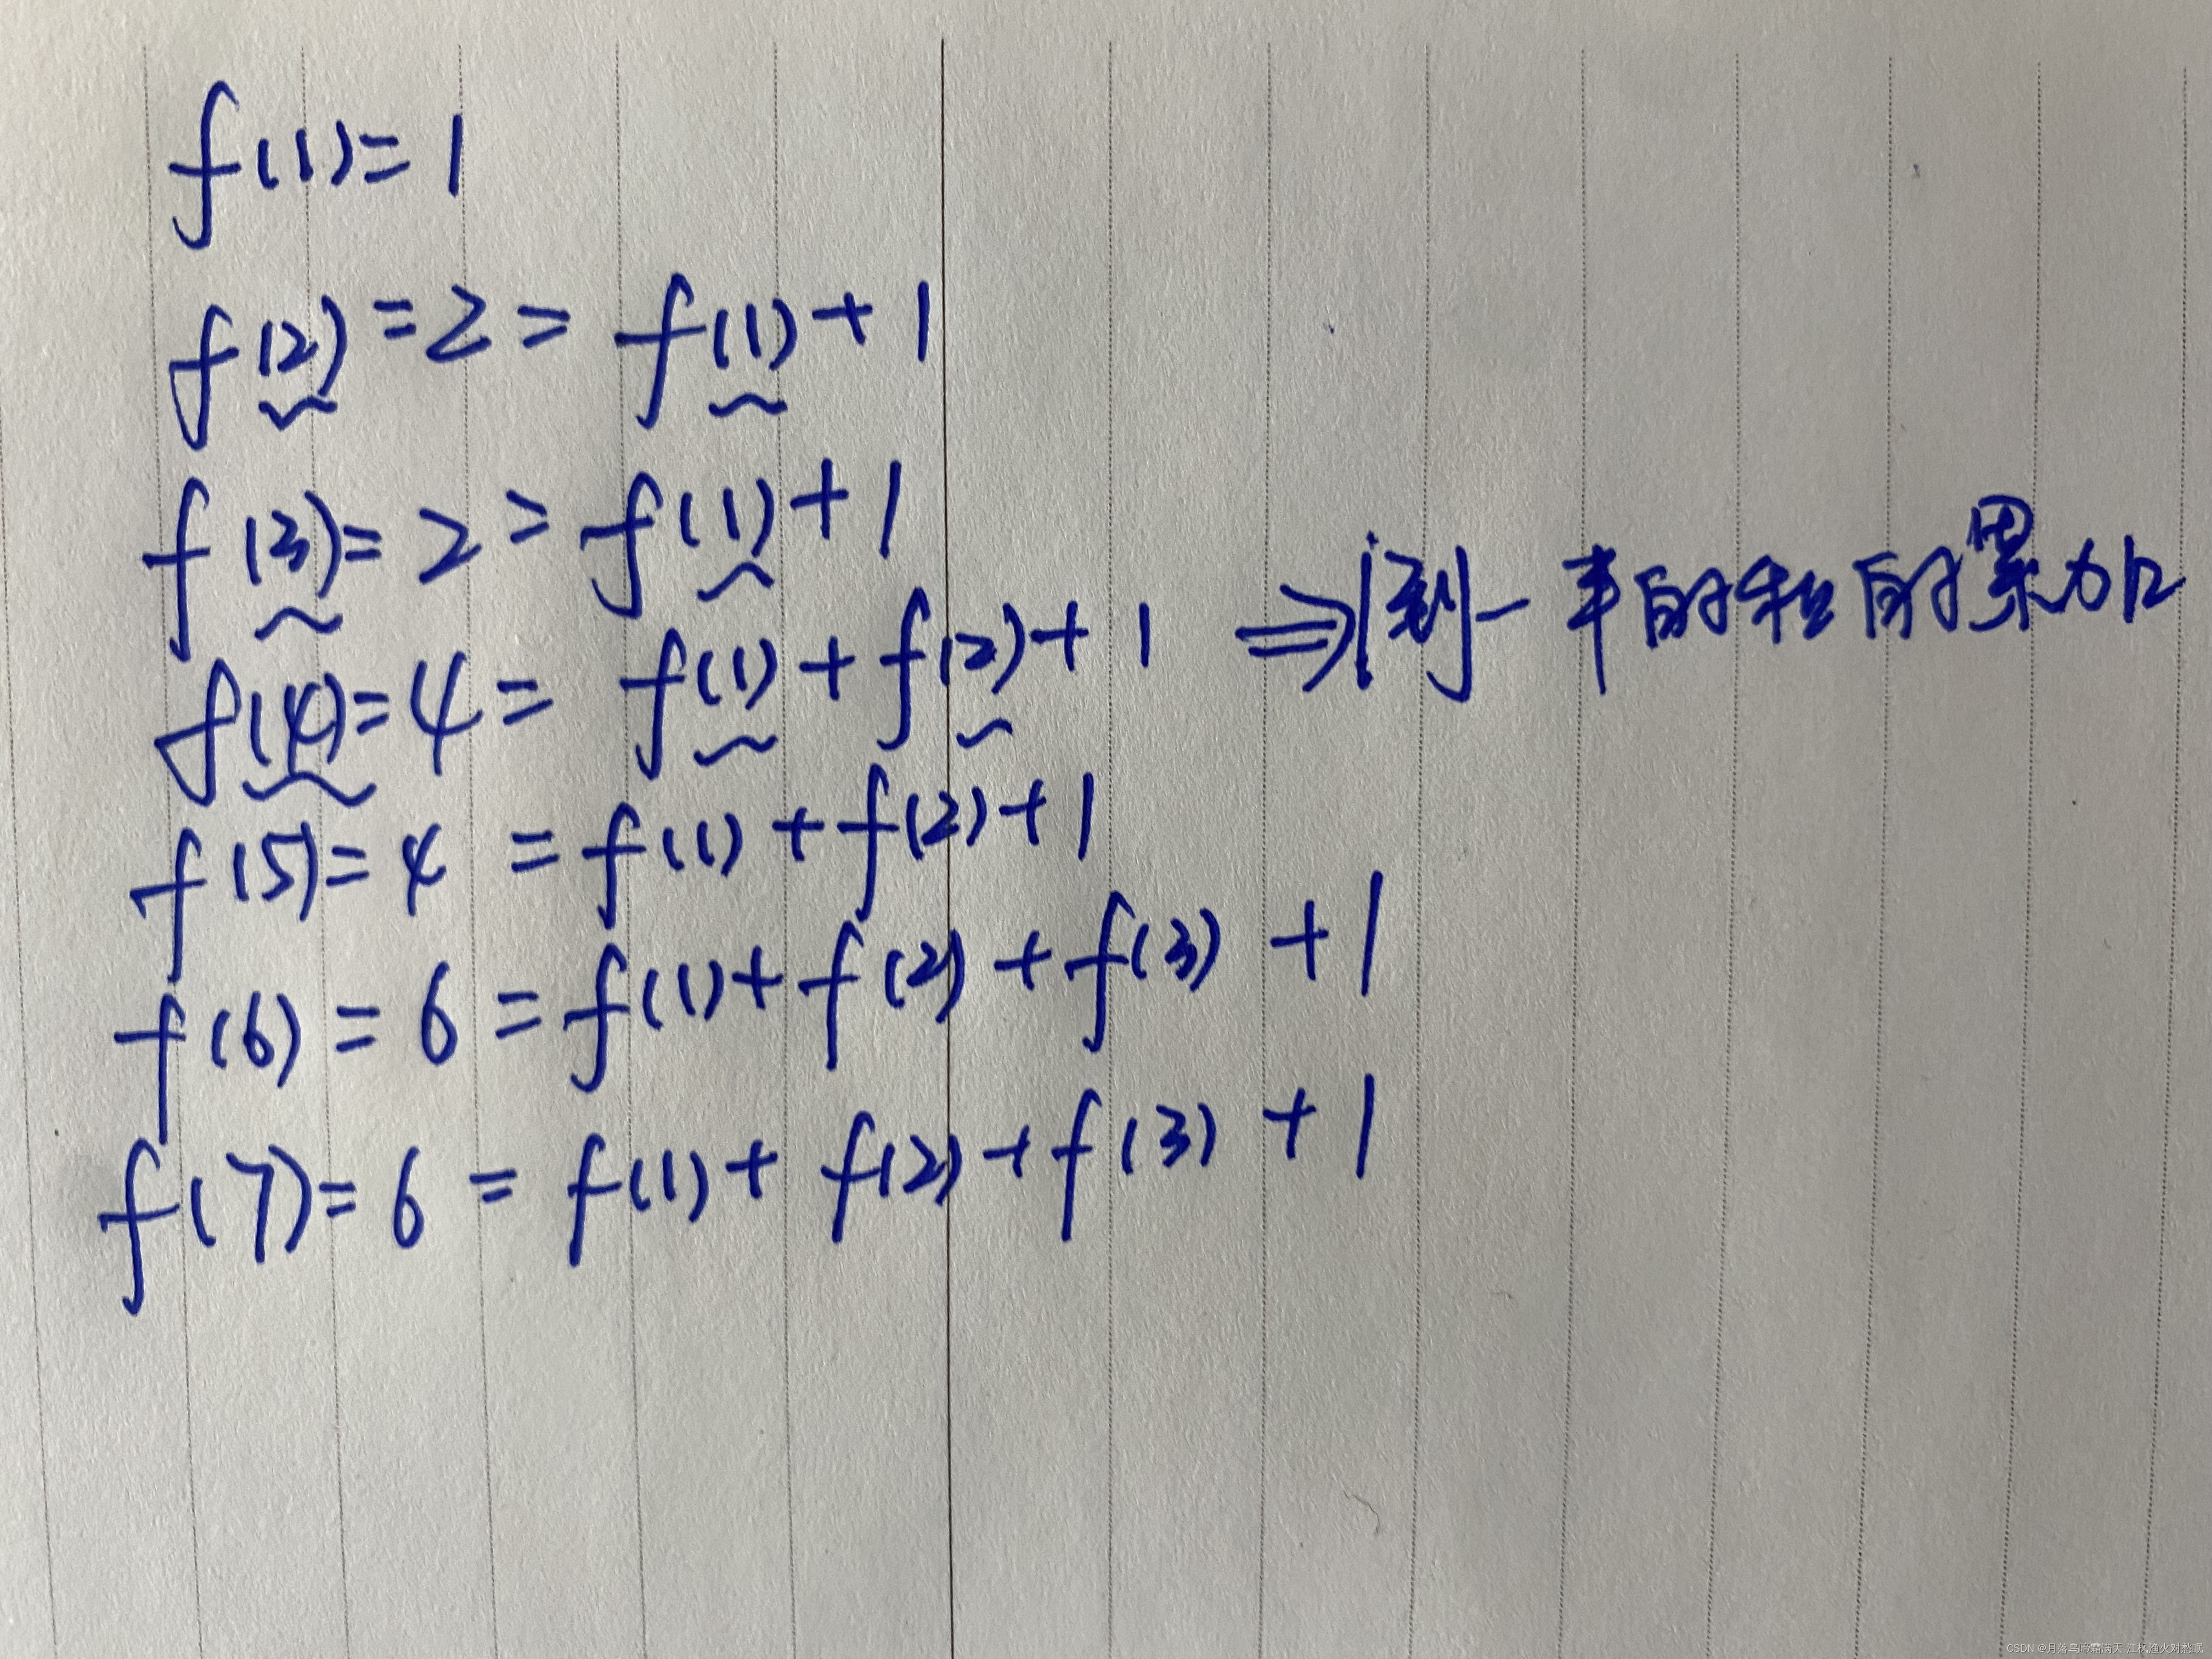 f(1)=1
f(2)=2=f(1)+1
f(3)=2=f(1)+1
f(4)=4=f(1)+f(2)+1 ⇒1到一半的和的累加
f(5)=4=f(1)+f(2)+1
f(6)=6=f(1)+f(2)+f(3)+1
f(7)=6=f(1)+f(2)+f(3)+1
CSDN @月落乌啼霜满天 江枫渔火对愁眠